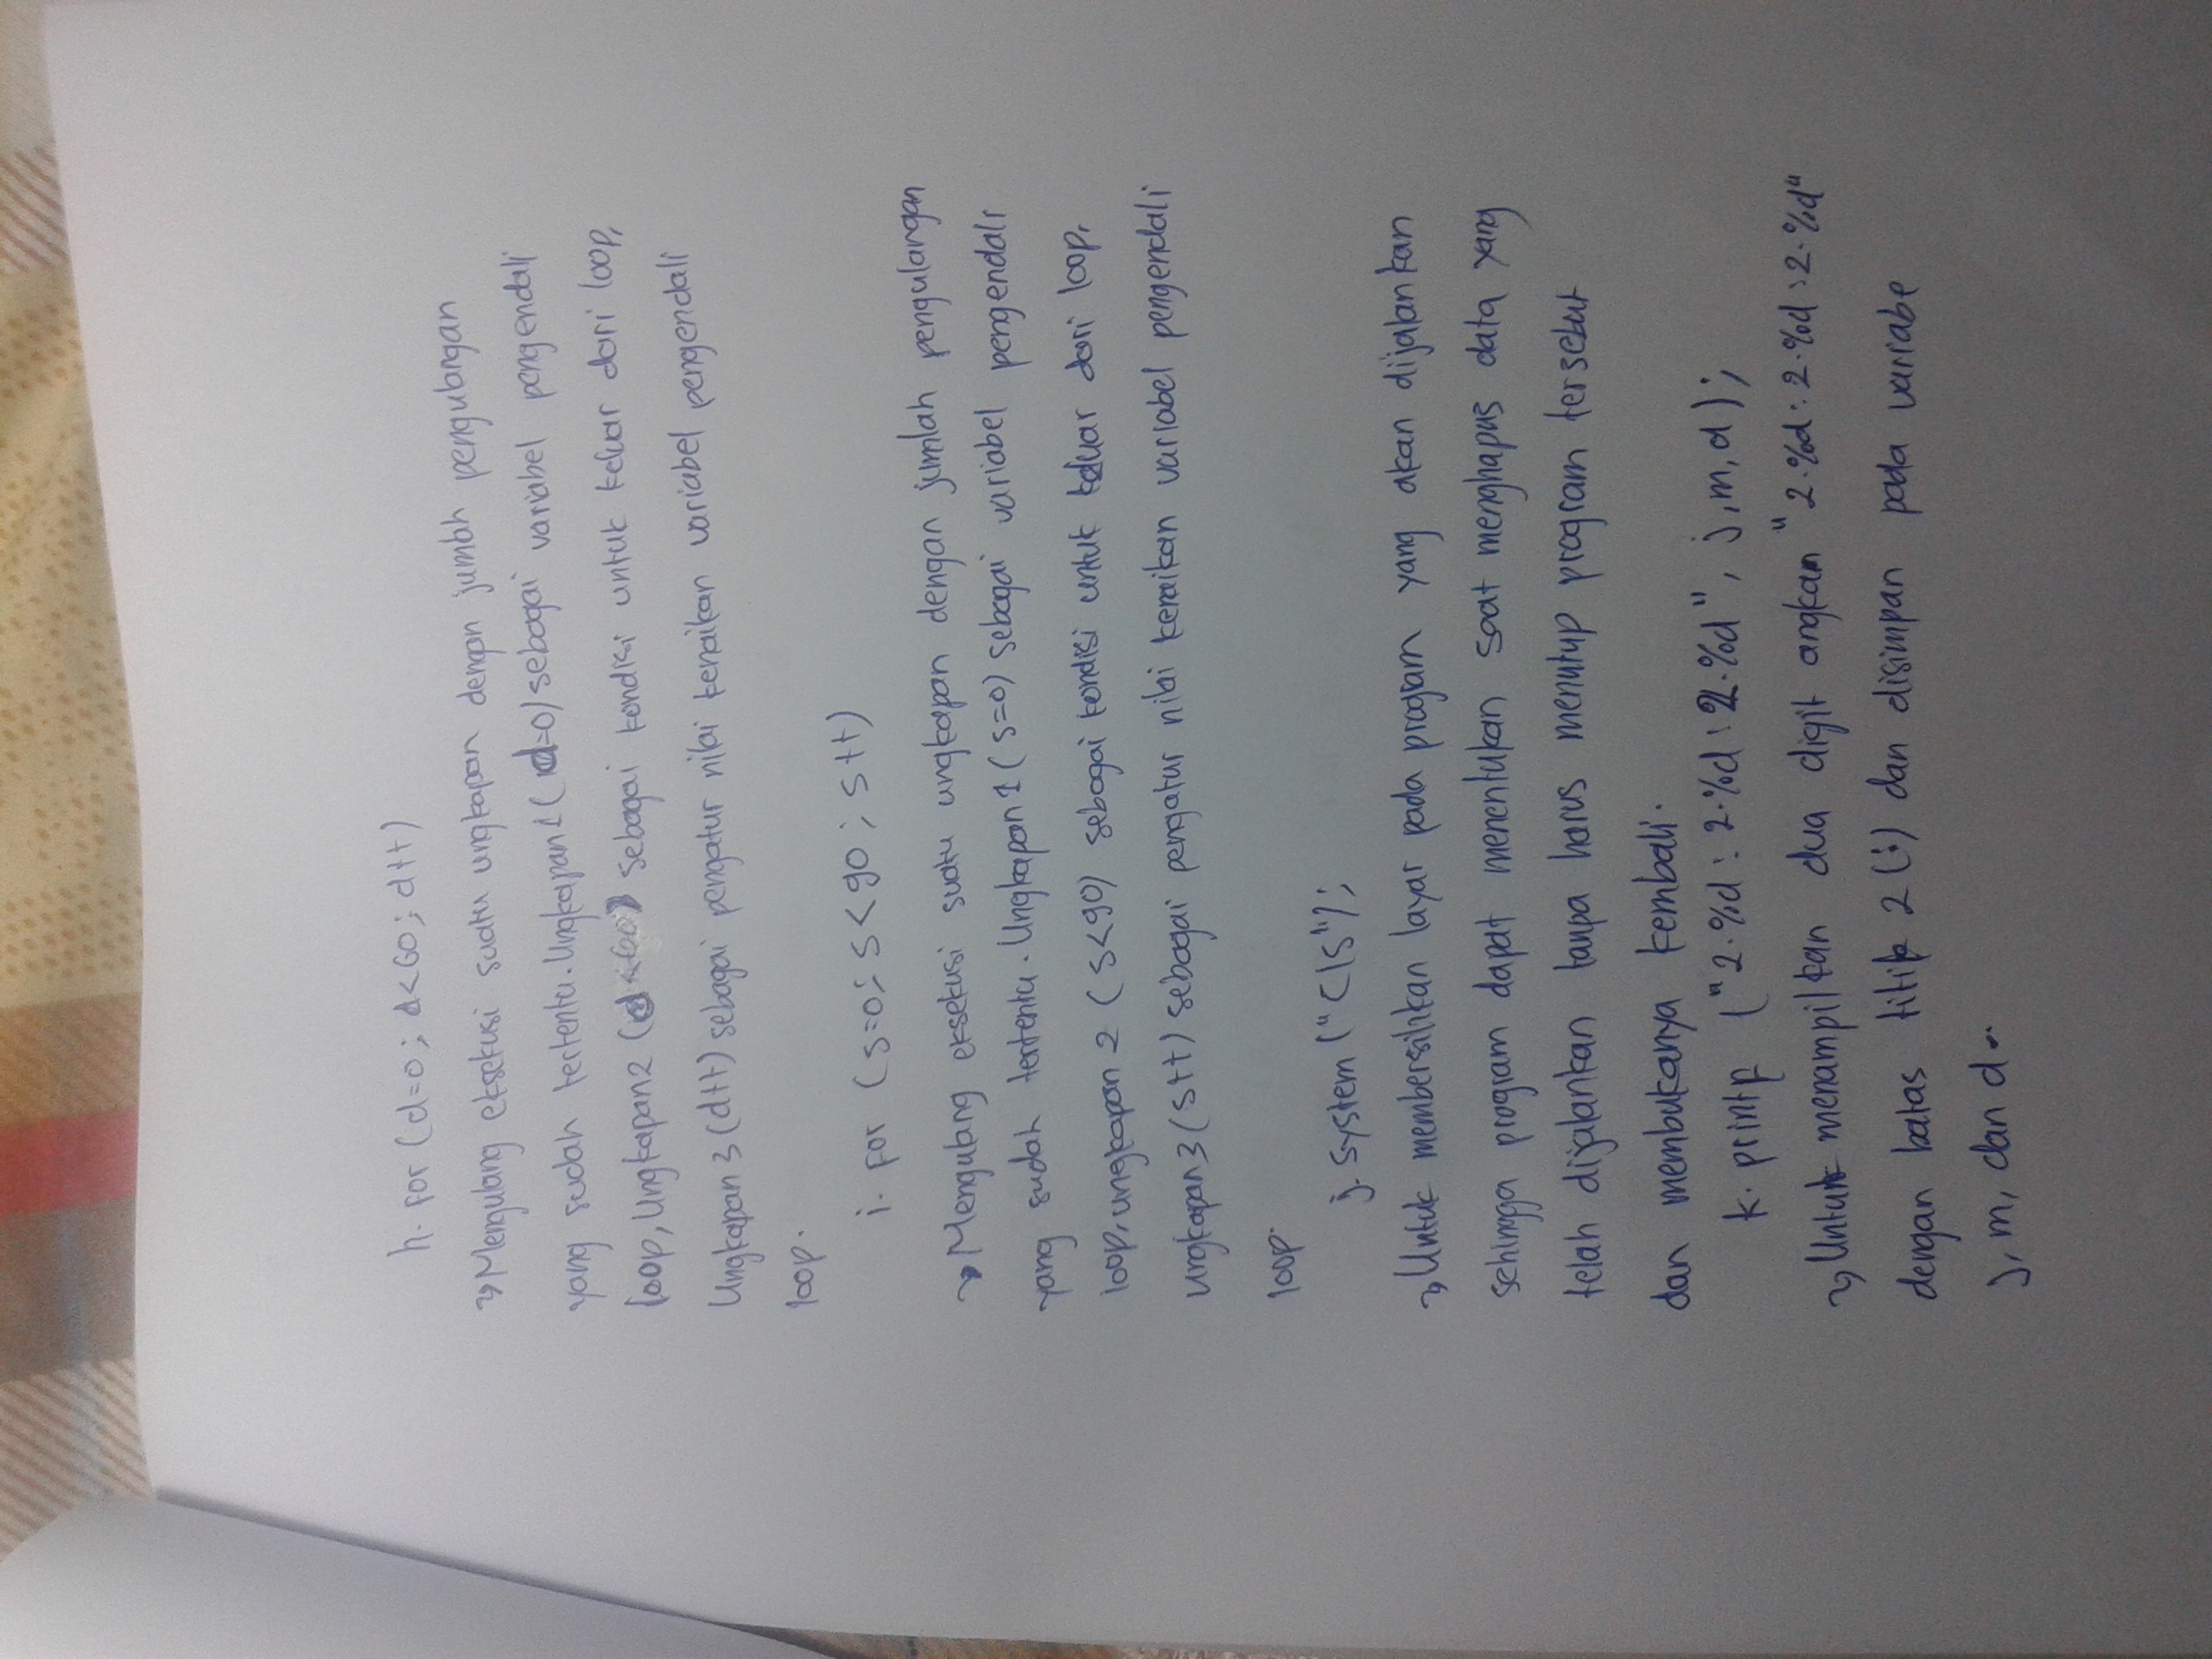 h. for (d=0; d<60; d++)
→ Mengulang eksekusi suatu ungkapan dengan jumlah pengulangan
yang sudah tertentu. Ungkapan 1 (d=0) sebagai variabel pengendali
loop, Ungkapan 2 (d<60) sebagai kondisi untuk keluar dari loop,
Ungkapan 3 (d++) sebagai pengatur nilai kenaikan variabel pengendali
loop.
i. for (s=0; s<90; s++)
→ Mengulang eksekusi suatu ungkapan dengan jumlah pengulangan
yang sudah tertentu. Ungkapan 1 (s=0) sebagai variabel pengendali
loop, ungkapan 2 (s<90) sebagai kondisi untuk keluar dari loop,
ungkapan 3 (s++) sebagai pengatur nilai kenaikan variabel pengendali
loop.
j. system ("cls");
→ Untuk membersihkan layar pada program yang akan dijalankan
sehingga program dapat menentukan saat menghapus data yang
telah dijalankan tanpa harus menutup program tersebut
dan membukanya kembali.
k. printf ("2.%d : 2.%d : 2.%d", j,m,d);
→ Untuk menampilkan dua digit angkan "2.%d : 2.%d : 2.%d"
dengan batas titik 2 (:) dan disimpan pada variabe
j, m, dan d..